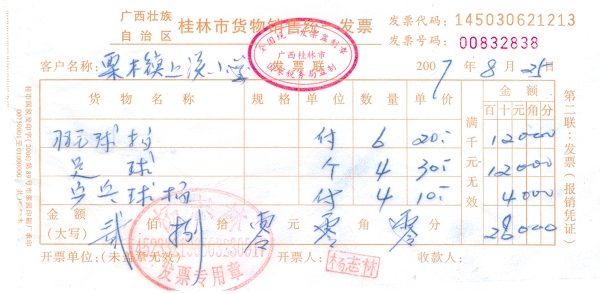 广西壮族自治区 桂林市货物销售统一发票
发票联
发票代码：145030621213
发票号码：00832838
全国统一发票监制章
广西桂林市
国家税务局监制
客户名称：栗木镇上溪小学 2007年8月25日
货物名称 规格 单位 数量 单价 金额
满千元无效 百十元角分
羽毛球拍 付 6 20- 12000
足球 个 4 30- 12000
乒乓球拍 付 4 10- 4000
金额（大写） 贰佰捌拾零元零角零分 28000
开票单位：(未盖章无效) 开票人：杨志林 收款人：
发票专用章
第二联：发票（报销凭证）